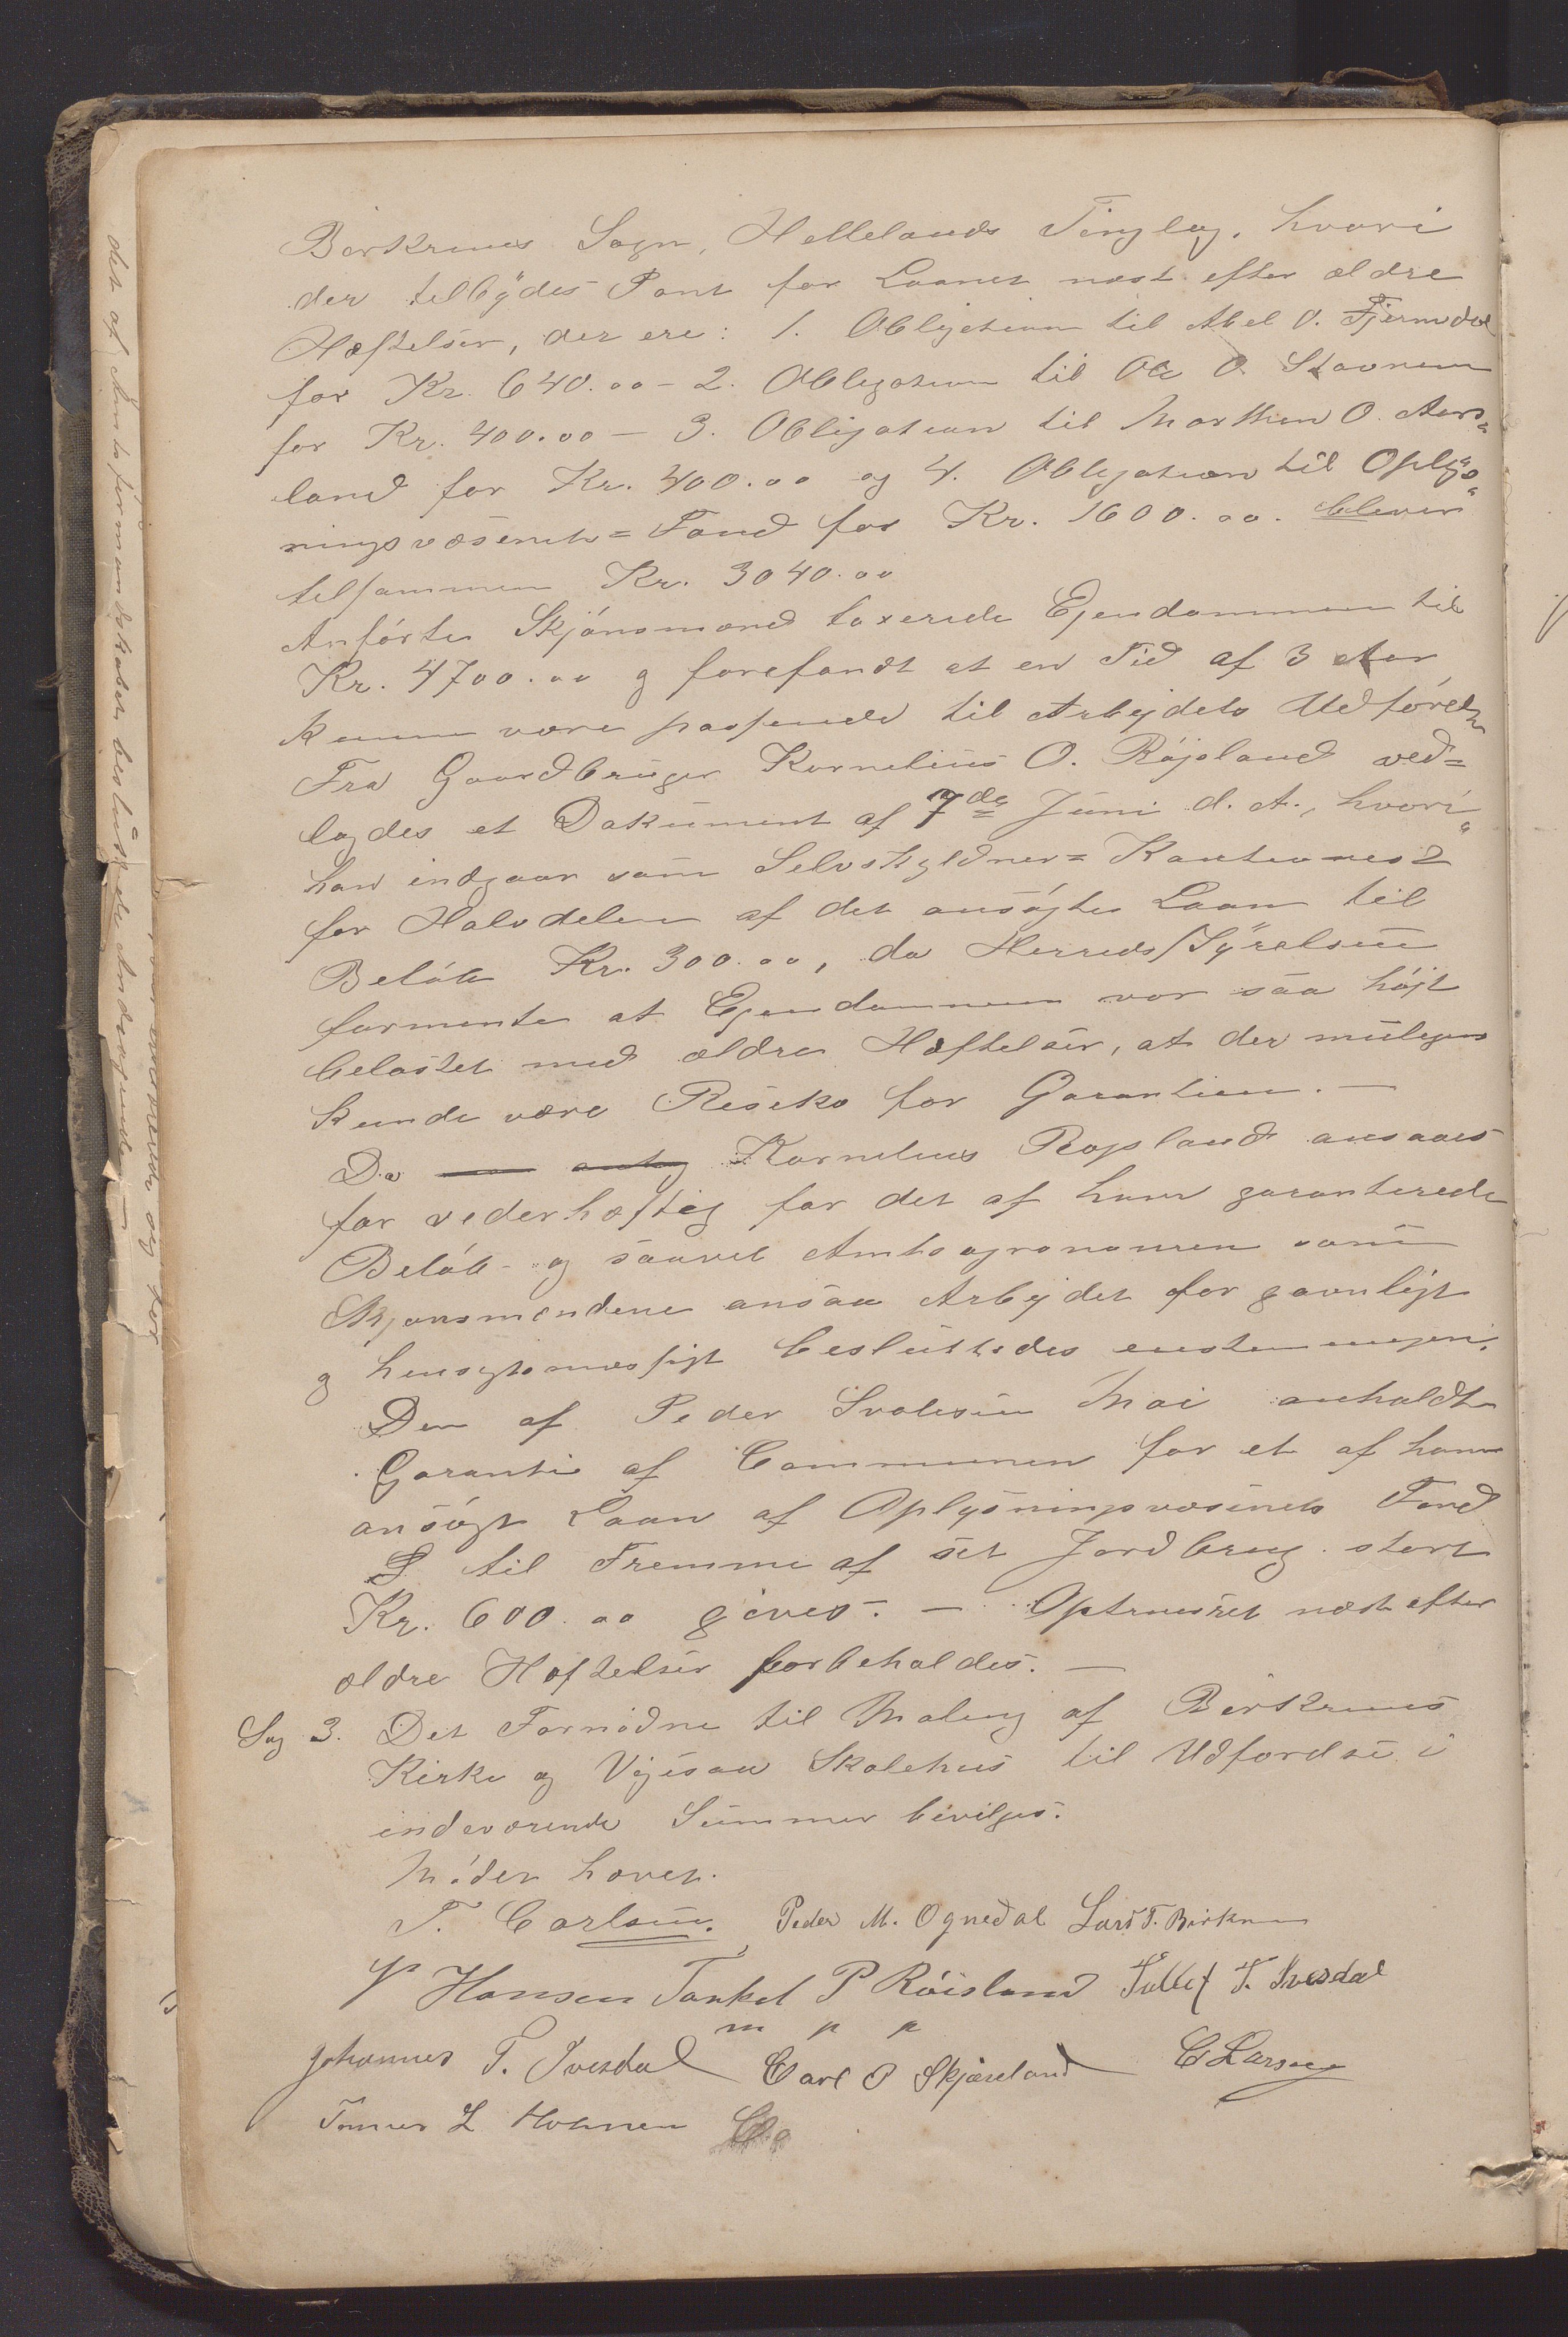 Birkrems Sogn, Hellelands Tinglag, hvori
der tilbydes Pant for Laanet næst efter ældre
Hæftelser, der ere: 1. Obligation til Abel O. Fjermdal
for Kr. 640.00 - 2. Obligation til Ole O. Stavnem
for Kr. 400.00 - 3. Obligation til Marthin O. Aars=
land for Kr. 400.00 og 4. Obligation til Oplys=
ningsvæsenets=Fond for Kr. 1600.00. bliver
tilsammen Kr. 3040.00
Anførte Skjønsmænd taxerede Ejendommen til
Kr. 4700.00 og forefandt at en Tid af 3 Aar
kunne være passende til Arbejdets Udførelse
Fra Gaardbruger Kornelius O. Røjsland ved=
lagdes et Dokument af 7de Juni d. A., hvori
han indgaar som Selvskyldner=Kautionist
for Halvdelen af det ansøgte Laan til
Beløb Kr. 300.00, da Herredsstyrelsen
formente at Ejendommen var saa højt
belastet med ældre Hæftelser, at der muligens
kunde være Risiko for Garantien. —
Da Kornelius Røjsland ansaaes
for vederhæftig for det af ham garanterede
Beløb - og saavel Amtsagronomen som
Skjønsmændene ansaa Arbejdet for gavnligt
og hensigtsmæssigt besluttedes enstemmigen:
Den af Peder Svalesen Moi anholdte
Garanti af Communen for et af ham
ansøgt Laan af Oplysningsvæsenets Fond
til Fremme af sit Jordbrug stort
Kr. 600.00 gives. — Optrinsret næst efter
ældre Hæftelser forbeholdes. —
Sag 3. Det Fornødne til Maling af Birkrems
Kirke og Vigesaa Skolehus til Udførelse i
indeværende Sommer bevilges.
Mødet hævet.
T. Carlsen. Peder M. Ognedal Lars T. Birkrem
P Hansen Tønkel P Røisland Tollef T. Ivesdal
m p p
Johannes T. Ivesdal Carl O Skjæveland C Larsen
Tønnes L Hovnen